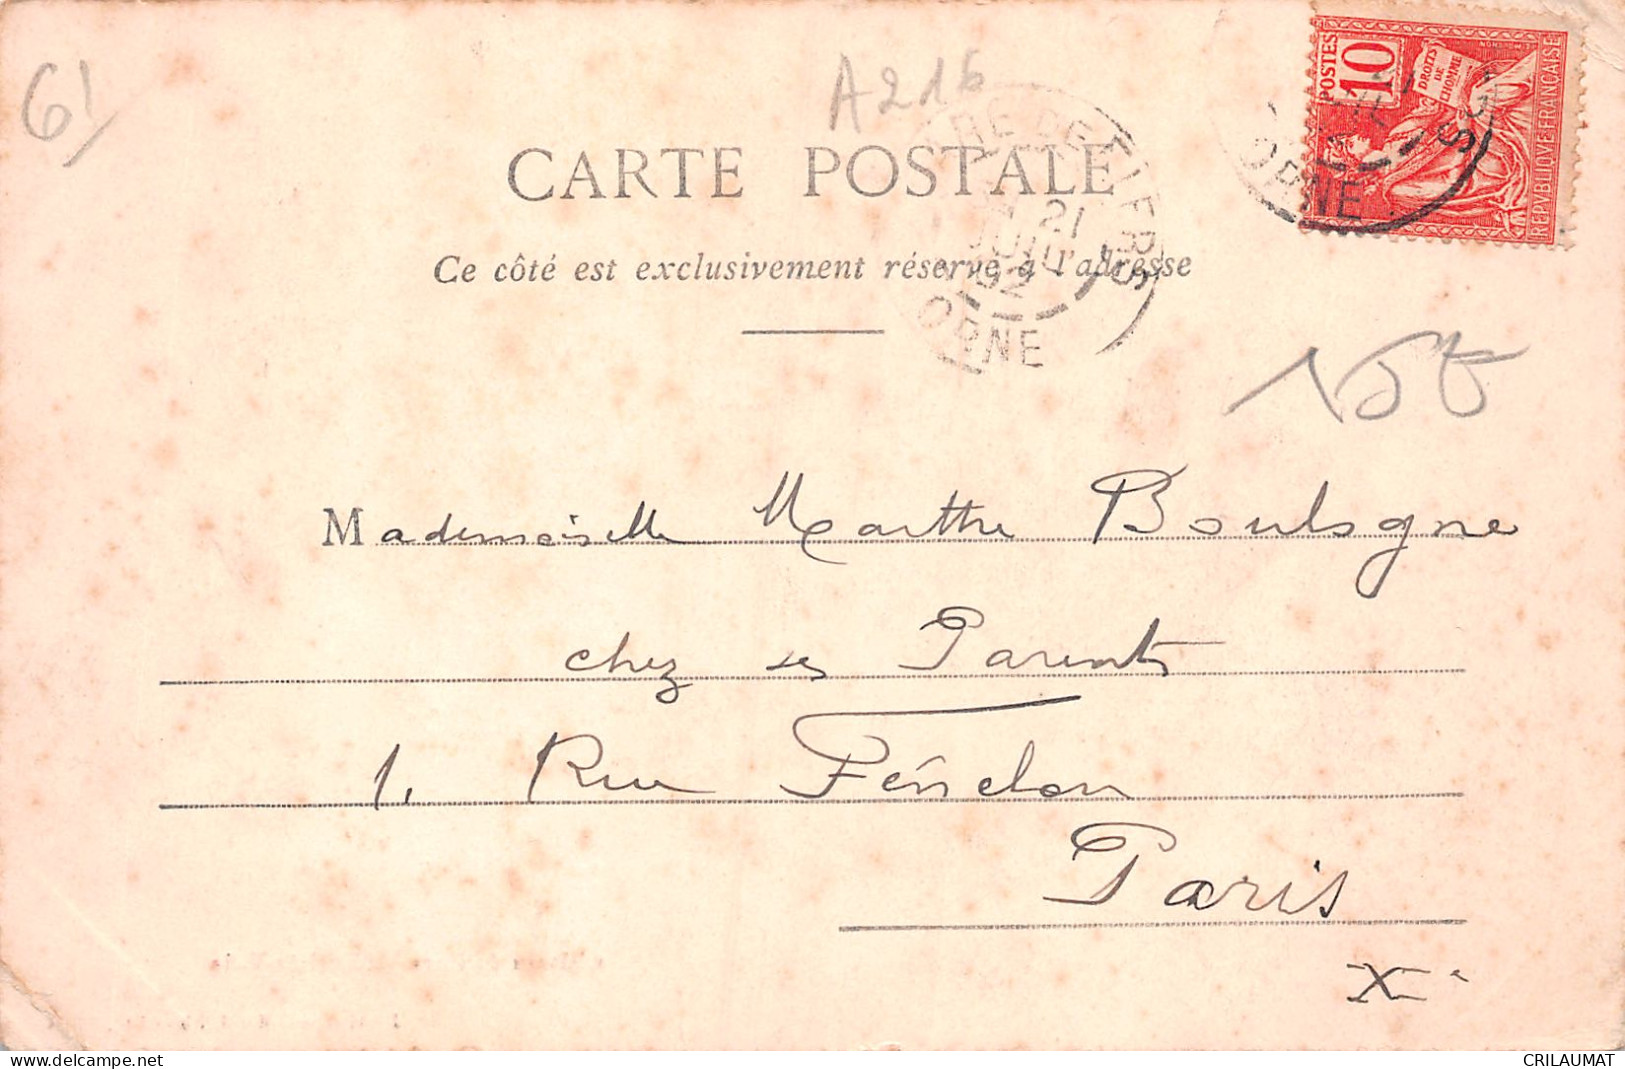 61
A216
CARTE POSTALE
Ce côté est exclusivement réservé à l'adresse
GARE DE FLERS
21
JUIL
02
ORNE
POSTES
10
DROITS
DE
L'HOMME
REPVBLIQVE FRANÇAISE
ORNE
Mademoiselle Marthe Boulogne
chez ses Parents
1, Rue Fénelon
Paris
Xe
www.delcampe.net
CRILAUMAT